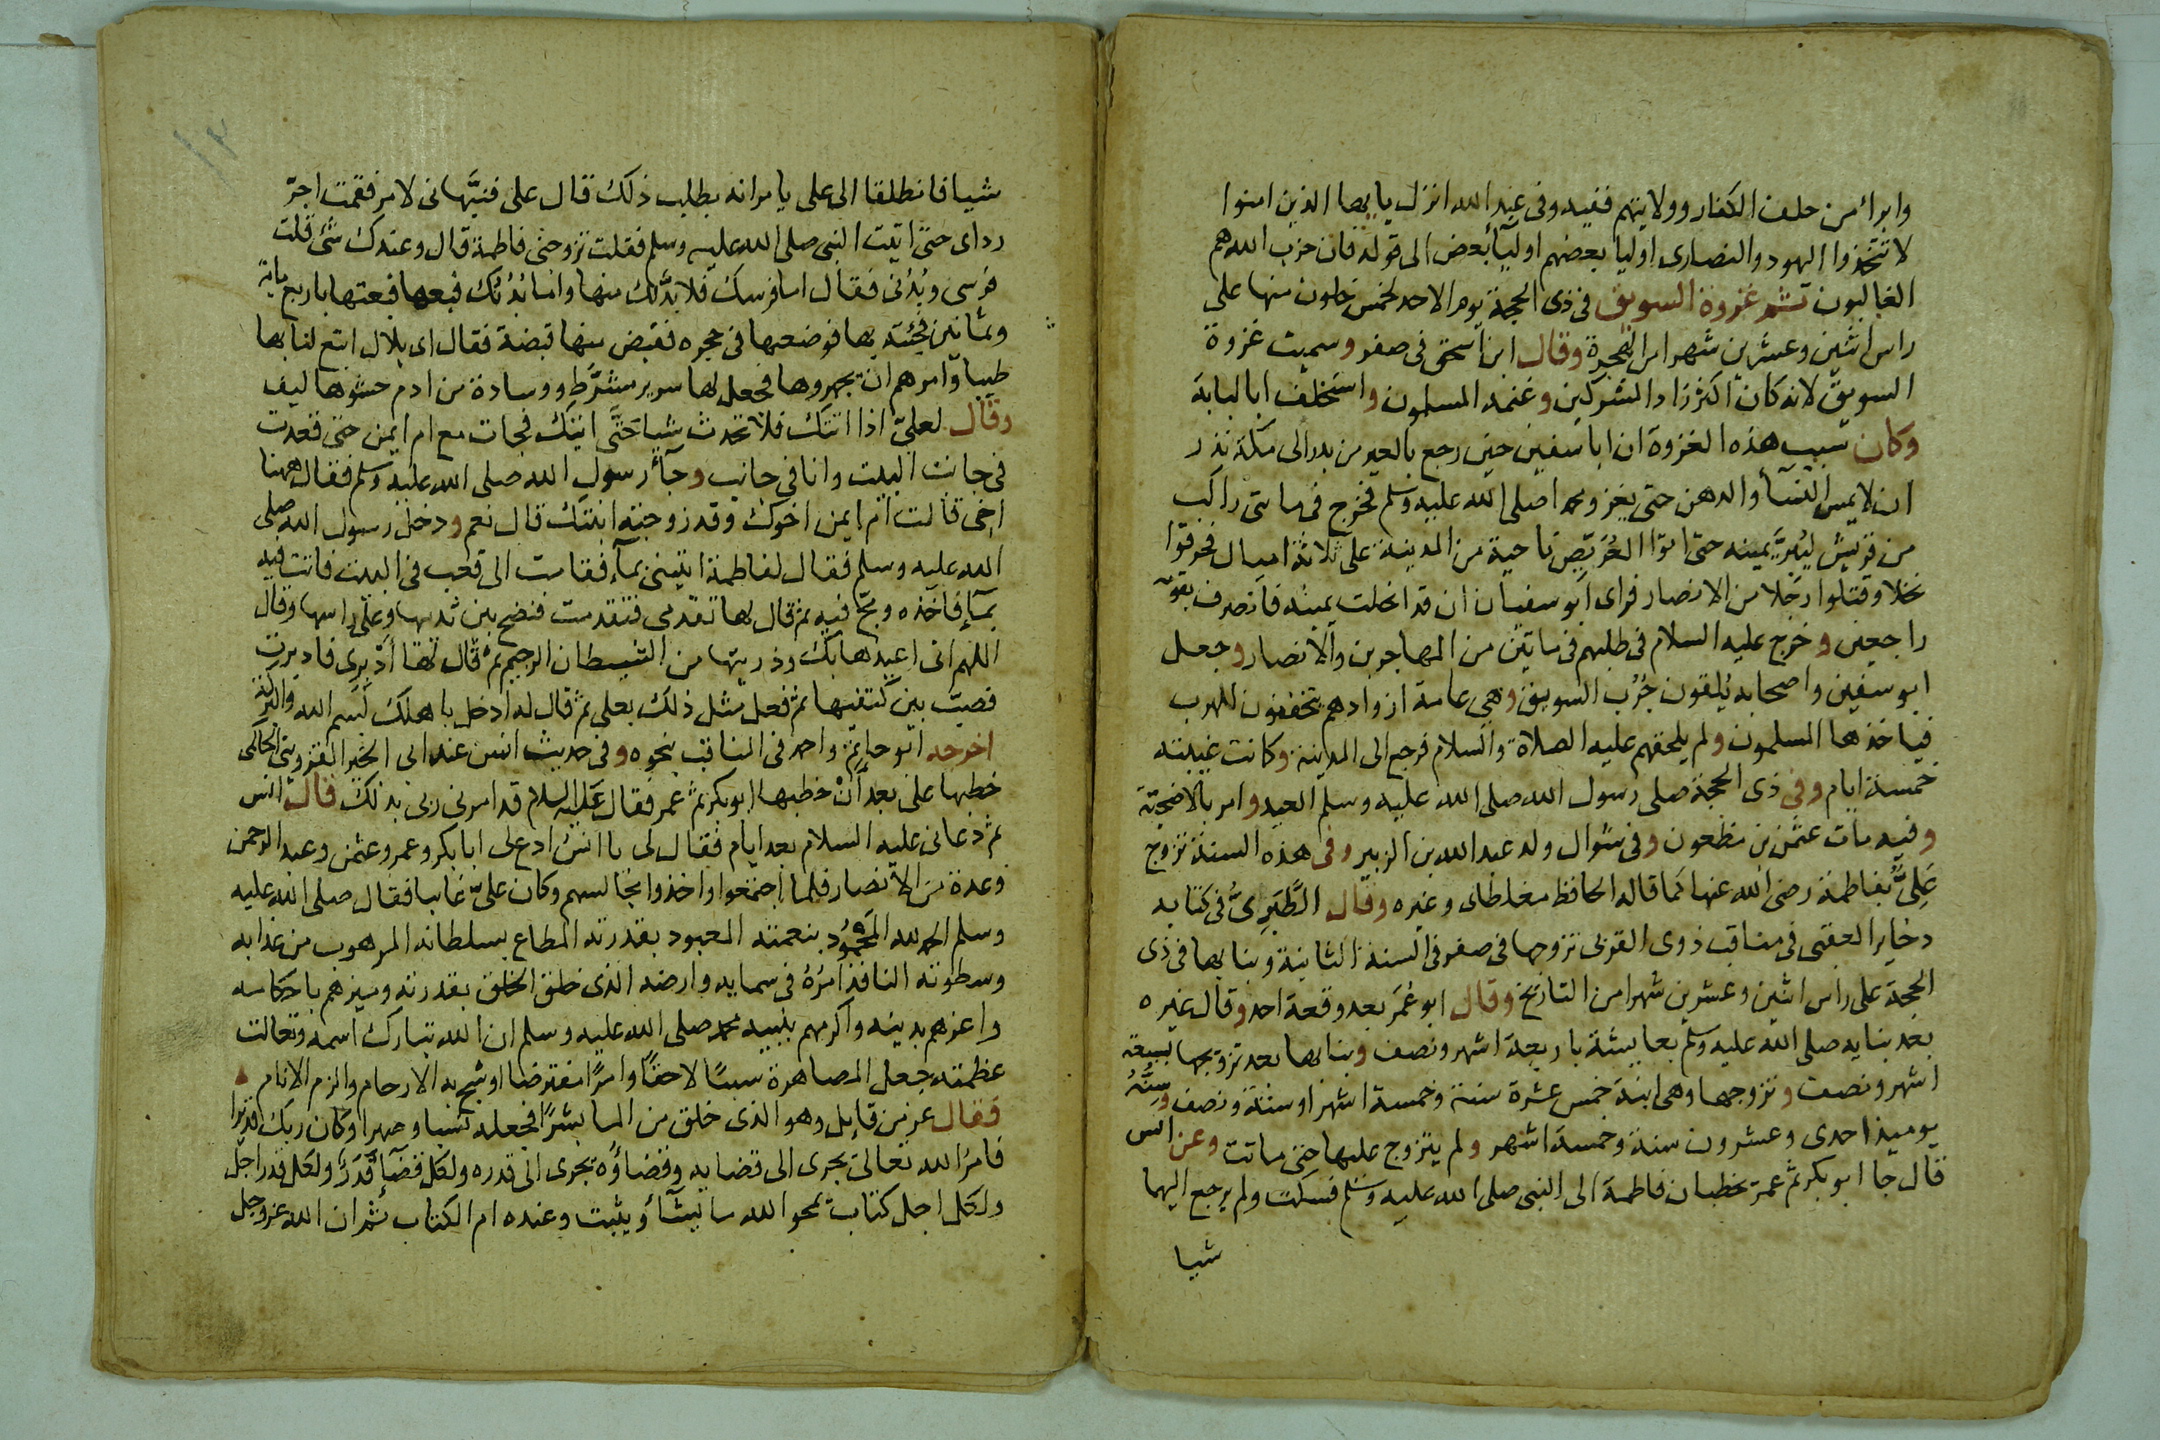 وابراء من حلف الكفار وولايتهم ففيه وفى عبد الله انزل يايها الذين امنوا
لا تتخذوا اليهود والنصارى اوليا بعضهم اوليآ بعض الى قوله فان حزب الله هم
الغالبون ثم غزوة السويق فى ذى الحجة يوم الاحد لخمس خلون منها على
راس اثنين وعشرين شهرا من الهجرة وقال ابن اسحق فى صفر وسميت غزوة
السويق لانه كان اكثر زاد المشركين وغنمه المسلمون واستخلف ابا لبابة
وكان سبب هذه الغزوة ان ابا سفين حين رجع بالعير من بدر الى مكة نذر
ان لا يمس النسآ والدهن حتى يغزو محمدا صلى الله عليه وسلم فخرج فى مايتى راكب
من قريش ليبر يمينه حتى اتوا العُرَيّض ناحية من المدينة على ثلاثة اميال فحرقوا
نخلا وقتلوا رجلا من الانصار فراى ابو سفيان ان قد انحلت يمينه فانصرف بقومه
راجعين وخرج عليه السلام فى طلبهم فى مايتين من المهاجرين والانصار وجعل
ابو سفين واصحابه يُلقون جُرُب السويق وهى عامة ازوادهم يتخففون للهرب
فياخذها المسلمون ولم يلحقهم عليه الصلاة والسلام فرجع الى المدينة وكانت غيبته
خمسة ايام وفى ذى الحجة صلى رسول الله صلى الله عليه وسلم العيد وامر بالاضحية
وفيه مات عثمن بن مظعون وفى شوال ولد عبد الله بن الزبير وفى هذه السنة تزوج
عَلِىُّ بفاطمة رضى الله عنها كما قاله الحافظ مغلطاى وغيره وقال الطَّبَرِىُّ فى كتابه
دخاير العقبى فى مناقب ذوى القربى تزوجها فى صفر فى السنة الثانية وبنا بها فى ذى
الحجة على راس اثنين وعشرين شهرا من التاريخ وقال ابو عُمَر بعد وقعة احد وقال غيره
بعد بنايه صلى الله عليه وسلم بعايشة باربعة اشهر ونصف وبنا بها بعد تزويجها بسبعة
اشهر ونصف وتزوجها وهى ابنة خمس عشرة سنة وخمسة اشهر او ستة ونصف وسِنُّهُ
يوميذ احدى وعشرون سنة وخمسة اشهر ولم يتزوج عليها حتى ماتت وعن انس
قال جا ابو بكر ثم عمر يخطبان فاطمة الى النبى صلى الله عليه وسلم فسكت ولم يرجع اليهما
شيا
شيا فانطلقا الى على يامرانه بطلب ذلك قال على فنبَّهانى لامر فقمت اجرّ
رداى حتىّ اتيت النبى صلى الله عليه وسلم فقلت تزوجنى فاطمة قال وعندك شئ قلت
فرسى وبُدْنى فقال اما فرسك فلا بدّ لك منها واما بُدْنك فبعها فبعتها باربع ماية
وثمانين فجئته بها فوضعها فى حجره فقبض منها قبضة فقال اى بلال ابتع لنا بها
طيبا وامرهم ان يجهروها فجعل لها سرير مشرَّط ووسادة من ادم حشوها ليف
وقال لعلىّ اذا اتتك فلا تحدث شيا حَتَّى اتيك فجات مع ام ايمن حتى قعدت
فى جانت البيت وانا فى جانب وجآء رسول الله صلى الله عليه وسلم فقال ههنا
اخى قالت ام ايمن اخوك وقد زوجته ابنتك قال نعم ودخل رسول الله صلى
الله عليه وسلم فقال لفاطمة ايتينى بمآء فقامت الى قعب فى البيت فاتت فيه
بمآء فاخذه ومج فيه ثم قال لها تقدمى فتقدمت فنضح بين ثديها وعلى راسها وقال
اللهم انى اعيذها بك وذريتها من الشيطان الرجيم ثم قال لها ادّبرى فادبرت
فصبّ بين كتفيها ثم فعل مثل ذلك بعلى ثم قال له ادخل باهلك بسم الله والبركة
اخرجه ابو حاتم واحمد فى المناقب بنحوه وفى حديث انس عند ابى الخير القزوينى الحاكمى
خطبها على بعد ان خطبها ابو بكر ثم عمر فقال عليه السلام قد امرنى ربى بذلك قال انس
ثم دعانى عليه السلام بعد ايام فقال لى يا انس ادع لى ابا بكر وعمر وعثمن وعبد الرحمن
وعدة من الانصار فلما اجتمعوا واخذوا مجالسهم وكان علىّ غايبا فقال صلى الله عليه
وسلم الحمد لله المحمود بنعمته المعبود بقدرته المطاع بسلطانه المرهوب من عذابه
وسطوته النافذ امرُهُ فى سمايه وارضه الذى خلق الخلق بقدرته وميزهم باحكامه
واعزهم بدينه واكرمهم بنبيه محمد صلى الله عليه وسلم ان الله تبارك اسمه وتعالت
عظمته جعل المصاهرة سببًا لاحقًا وامرًا مفترضا اوشج به الارحام والزم الانام
فقال عز من قايل وهو الذى خلق من الما بشرًا فجعله نسبا وصهرا وكان ربك قديرا
فامرُ الله تعالى يجرى الى قضايه وقضاؤه يجرى الى قدره ولكل قضآء قَدَرٌ ولكل قدر اجلٌ
ولكل اجل كتاب يمحو الله ما يشآء ويثبت وعنده ام الكتاب ثم ان الله عز وجل